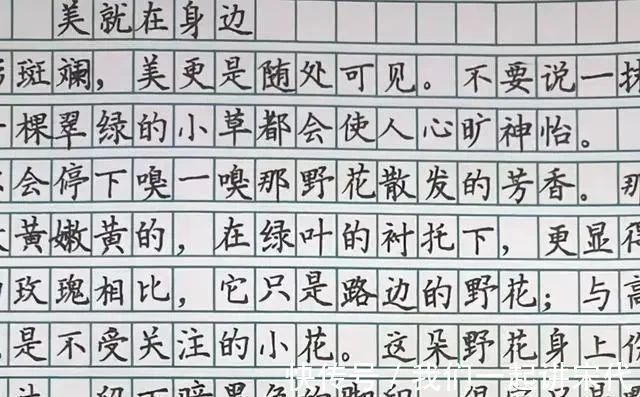 美就在身边
斑斓，美更是随处可见。不要说一
棵翠绿的小草都会使人心旷神怡。
会停下嗅一嗅那野花散发的芳香。那
黄嫩黄的，在绿叶的衬托下，更显得
玫瑰相比，它只是路边的野花；与高
是不受关注的小花。这朵野花身上
快传号/我们一起讲宋代